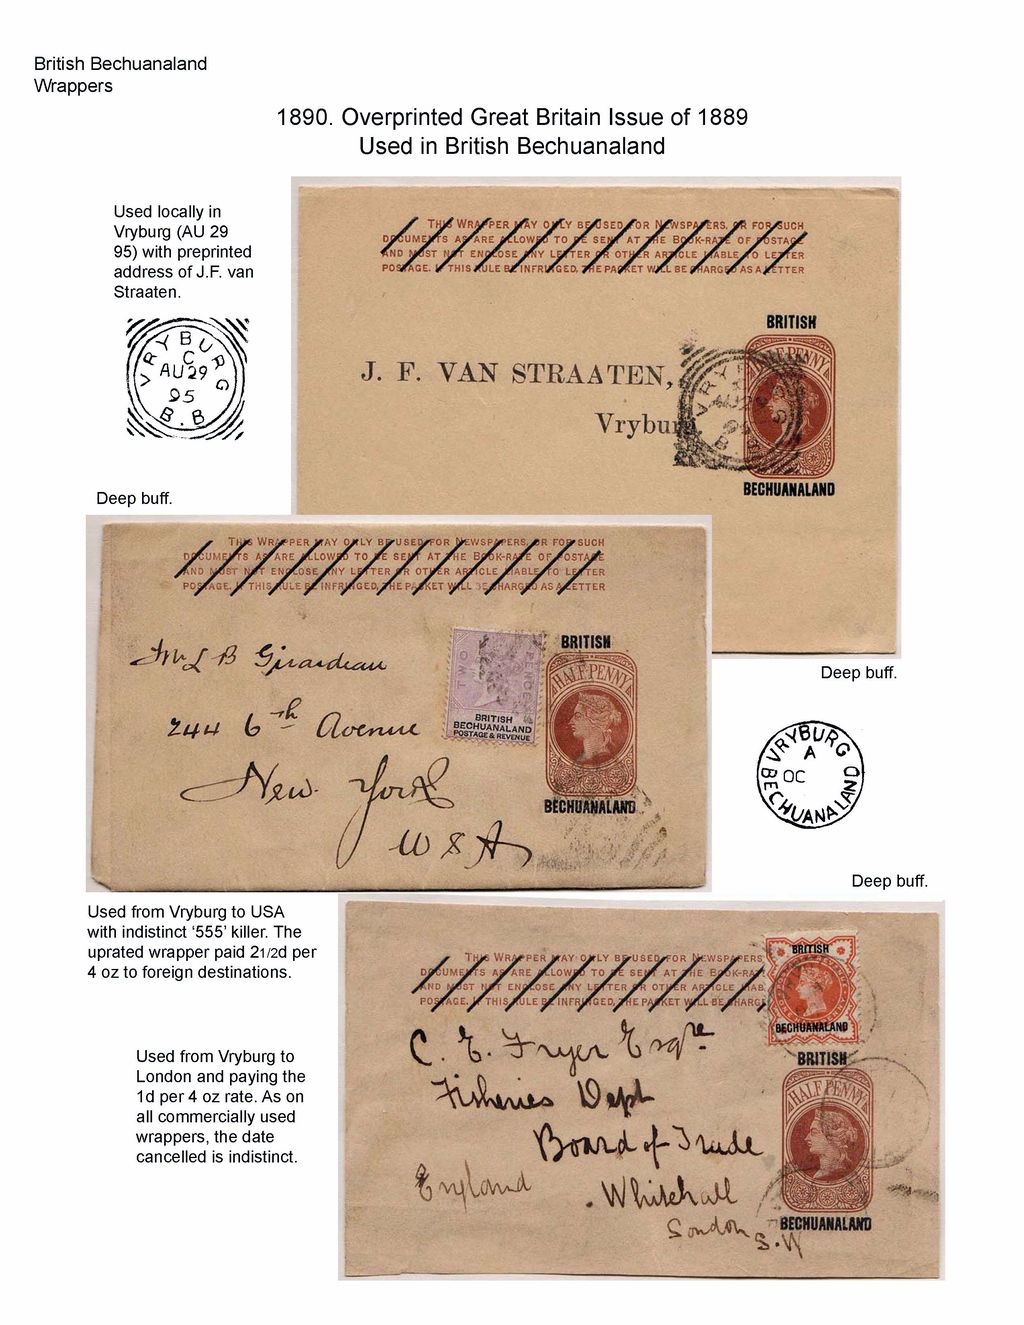 British Bechuanaland
Wrappers
1890. Overprinted Great Britain Issue of 1889
Used in British Bechuanaland
Used locally in
Vryburg (AU 29
95) with preprinted
address of J.F. van
Straaten.
VRYBURG
C
AU 29
95
B.B
Deep buff.
THIS WRAPPER MAY ONLY BE USED FOR NEWSPAPERS, OR FOR SUCH
DOCUMENTS AS ARE ALLOWED TO BE SENT AT THE BOOK-RATE OF POSTAGE
AND MUST NOT ENCLOSE ANY LETTER OR OTHER ARTICLE LIABLE TO LETTER
POSTAGE. IF THIS RULE BE INFRINGED, THE PACKET WILL BE CHARGED AS A LETTER
BRITISH
HALFPENNY
J. F. VAN STRAATEN,
Vryburg.
BECHUANALAND
THIS WRAPPER MAY ONLY BE USED FOR NEWSPAPERS, OR FOR SUCH
DOCUMENTS AS ARE ALLOWED TO BE SENT AT THE BOOK-RATE OF POSTAGE
AND MUST NOT ENCLOSE ANY LETTER OR OTHER ARTICLE LIABLE TO LETTER
POSTAGE. IF THIS RULE BE INFRINGED, THE PACKET WILL BE CHARGED AS A LETTER
TWO PENCE
BRITISH
BECHUANALAND
POSTAGE & REVENUE
BRITISH
HALFPENNY
BECHUANALAND
Mr L B Girardeau
244 6th Avenue
New York
USA
Deep buff.
VRYBURG
A
OC
BECHUANALAND
Deep buff.
Used from Vryburg to USA
with indistinct '555' killer. The
uprated wrapper paid 21/2d per
4 oz to foreign destinations.
THIS WRAPPER MAY ONLY BE USED FOR NEWSPAPERS
DOCUMENTS AS ARE ALLOWED TO BE SENT AT THE BOOK-RAT
AND MUST NOT ENCLOSE ANY LETTER OR OTHER ARTICLE LIAB
POSTAGE. IF THIS RULE BE INFRINGED, THE PACKET WILL BE CHARG
BRITISH
BECHUANALAND
BRITISH
HALFPENNY
BECHUANALAND
C. E. Fryer Esqre
Fisheries Dept
Board of Trade
Whitehall
London S.W
England
Used from Vryburg to
London and paying the
1d per 4 oz rate. As on
all commercially used
wrappers, the date
cancelled is indistinct.